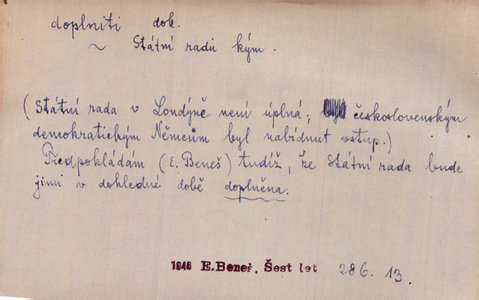 doplniti dok.
~ Státní radu kým.
(Státní rada v Londýně není úplná; československým
demokratickým Němcům byl nabídnut vstup.)
Předpokládám (E. Beneš) tudíž, že Státní rada bude
jimi v dohledné době doplněna.
1946 E. Beneš, Šest let 286. 13.